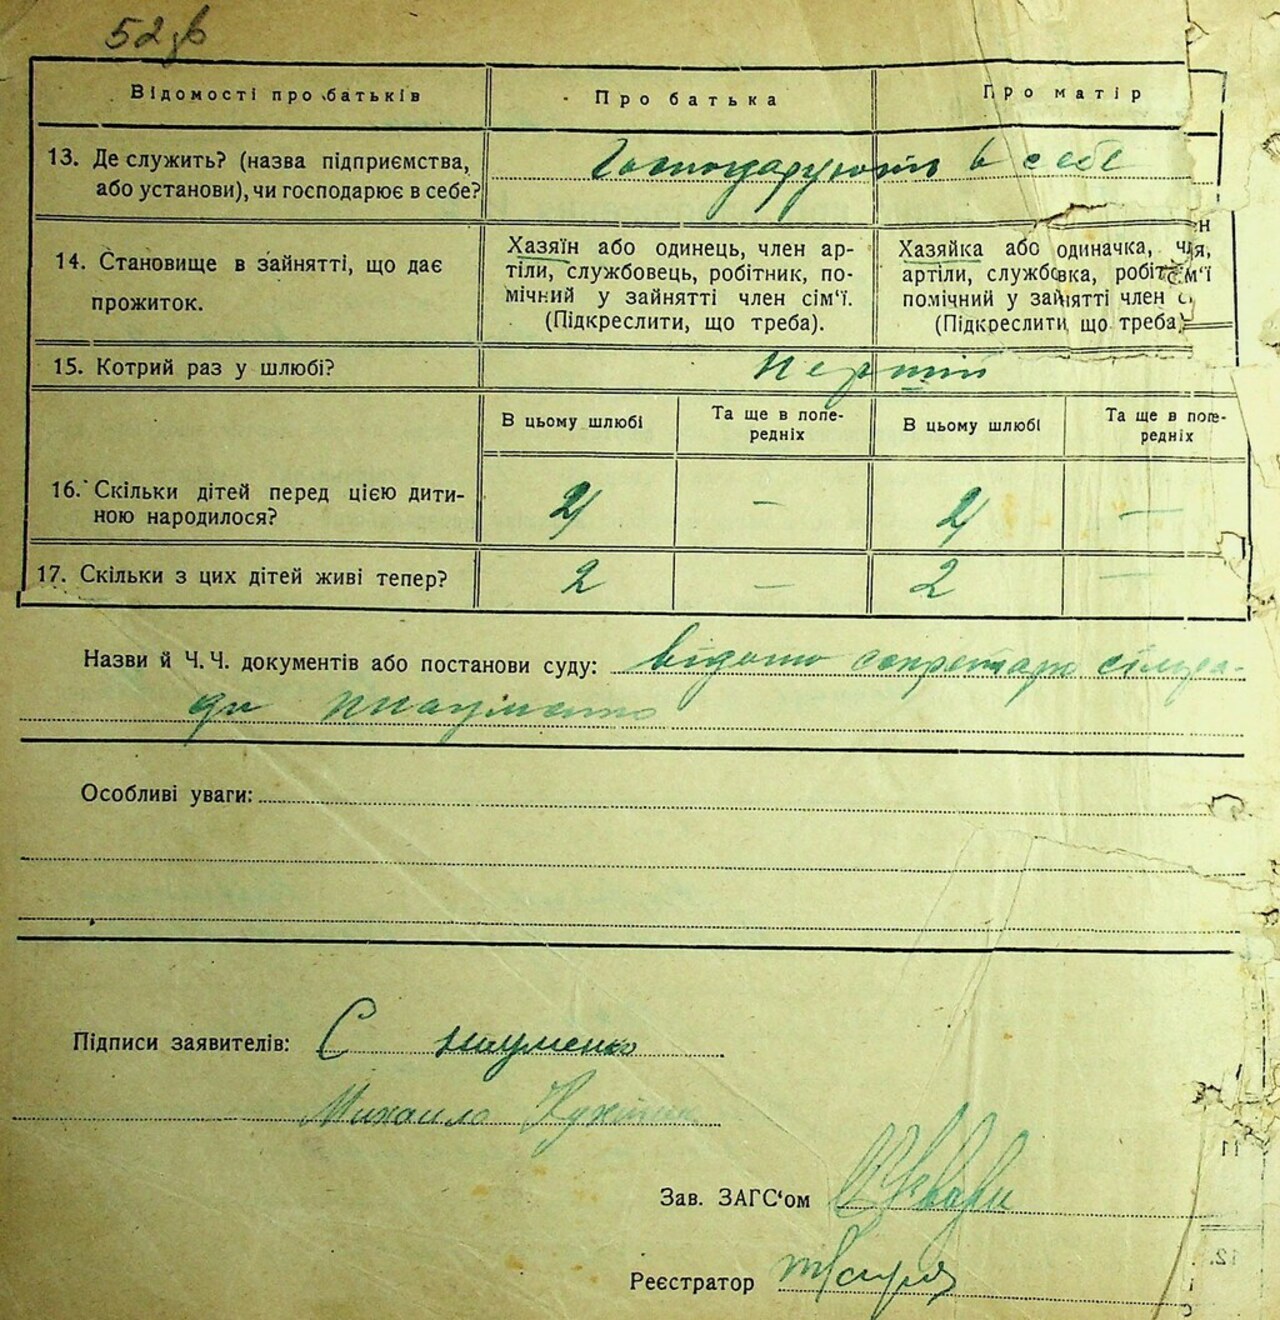 52 зв
Відомості про батьків
Про батька
Про матір
13. Де служить? (назва підприємства,
або установи), чи господарює в себе?
Господарують в себе
14. Становище в зайнятті, що дає
прожиток.
Хазяїн або одинець, член ар-
тіли, службовець, робітник, по-
мічний у зайнятті член сім'ї.
(Підкреслити, що треба).
Хазяйка або одиначка,
артіли, службовка,
помічний у зайнятті член
(Підкреслити, що треба)
15. Котрий раз у шлюбі?
Перший
В цьому шлюбі
Та ще в попе-
редніх
В цьому шлюбі
Та ще в попе-
редніх
16. Скільки дітей перед цією дити-
ною народилося?
2
—
2
—
17. Скільки з цих дітей живі тепер?
2
—
2
—
Назви й Ч. Ч. документів або постанови суду: відомо секретарю сільра-
ди
Особливі уваги:
Підписи заявителів: С Науменко
Михаило
Зав. ЗАГС'ом
Реєстратор
11
12.